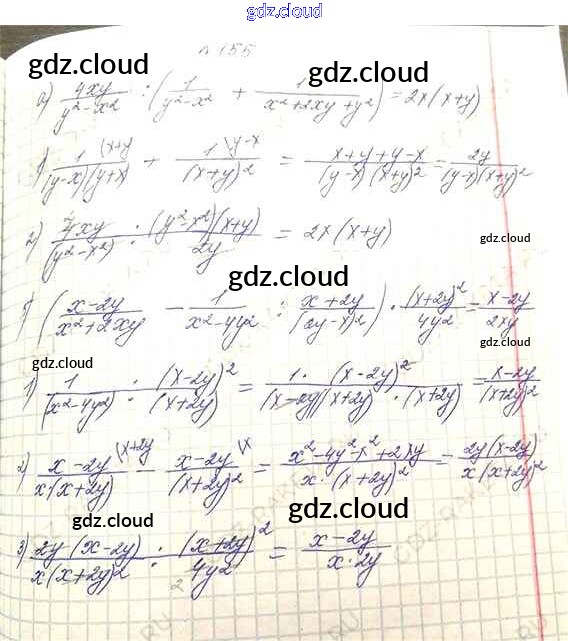 gdz.cloud
n 155
gdz.cloud gdz.cloud
а) 4xy/(y²-x²) : (1/(y²-x²) + 1/(x²+2xy+y²)) = 2x(x+y)
1) 1 (x+y/((y-x)(y+x)) + 1 (y-x/(x+y)² = (x+y+y-x)/((y-x)(x+y)²) = 2y/((y-x)(x+y)²)
2) 4xy/(y²-x²) : (y²-x²)(x+y)/2y = 2x(x+y)
gdz.cloud
gdz.cloud
б) ((x-2y)/(x²+2xy) - 1/(x²-4y²) : (x+2y)/(2y-x)²) · (x+2y)²/4y² = (x-2y)/2xy
gdz.cloud gdz.cloud
1) 1/(x²-4y²) · (x-2y)²/(x+2y) = 1·(x-2y)²/((x-2y)(x+2y)·(x+2y)) = (x-2y)/(x+2y)²
2) (x-2y (x+2y)/(x(x+2y)) - (x-2y (x)/(x+2y)² = (x²-4y²-x²+2xy)/(x·(x+2y)²) = 2y(x-2y)/(x(x+2y)²)
gdz.cloud gdz.cloud
3) 2y(x-2y)/(x(x+2y)²) : (x+2y)²/4y² = (x-2y)/(x·2y)